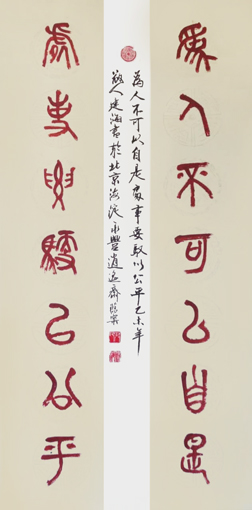 為人不可以自是
處事要馭以公平
為人不可以自是處事要馭以公平乙未年
人建海書於北京海淀永豐逍遙齋